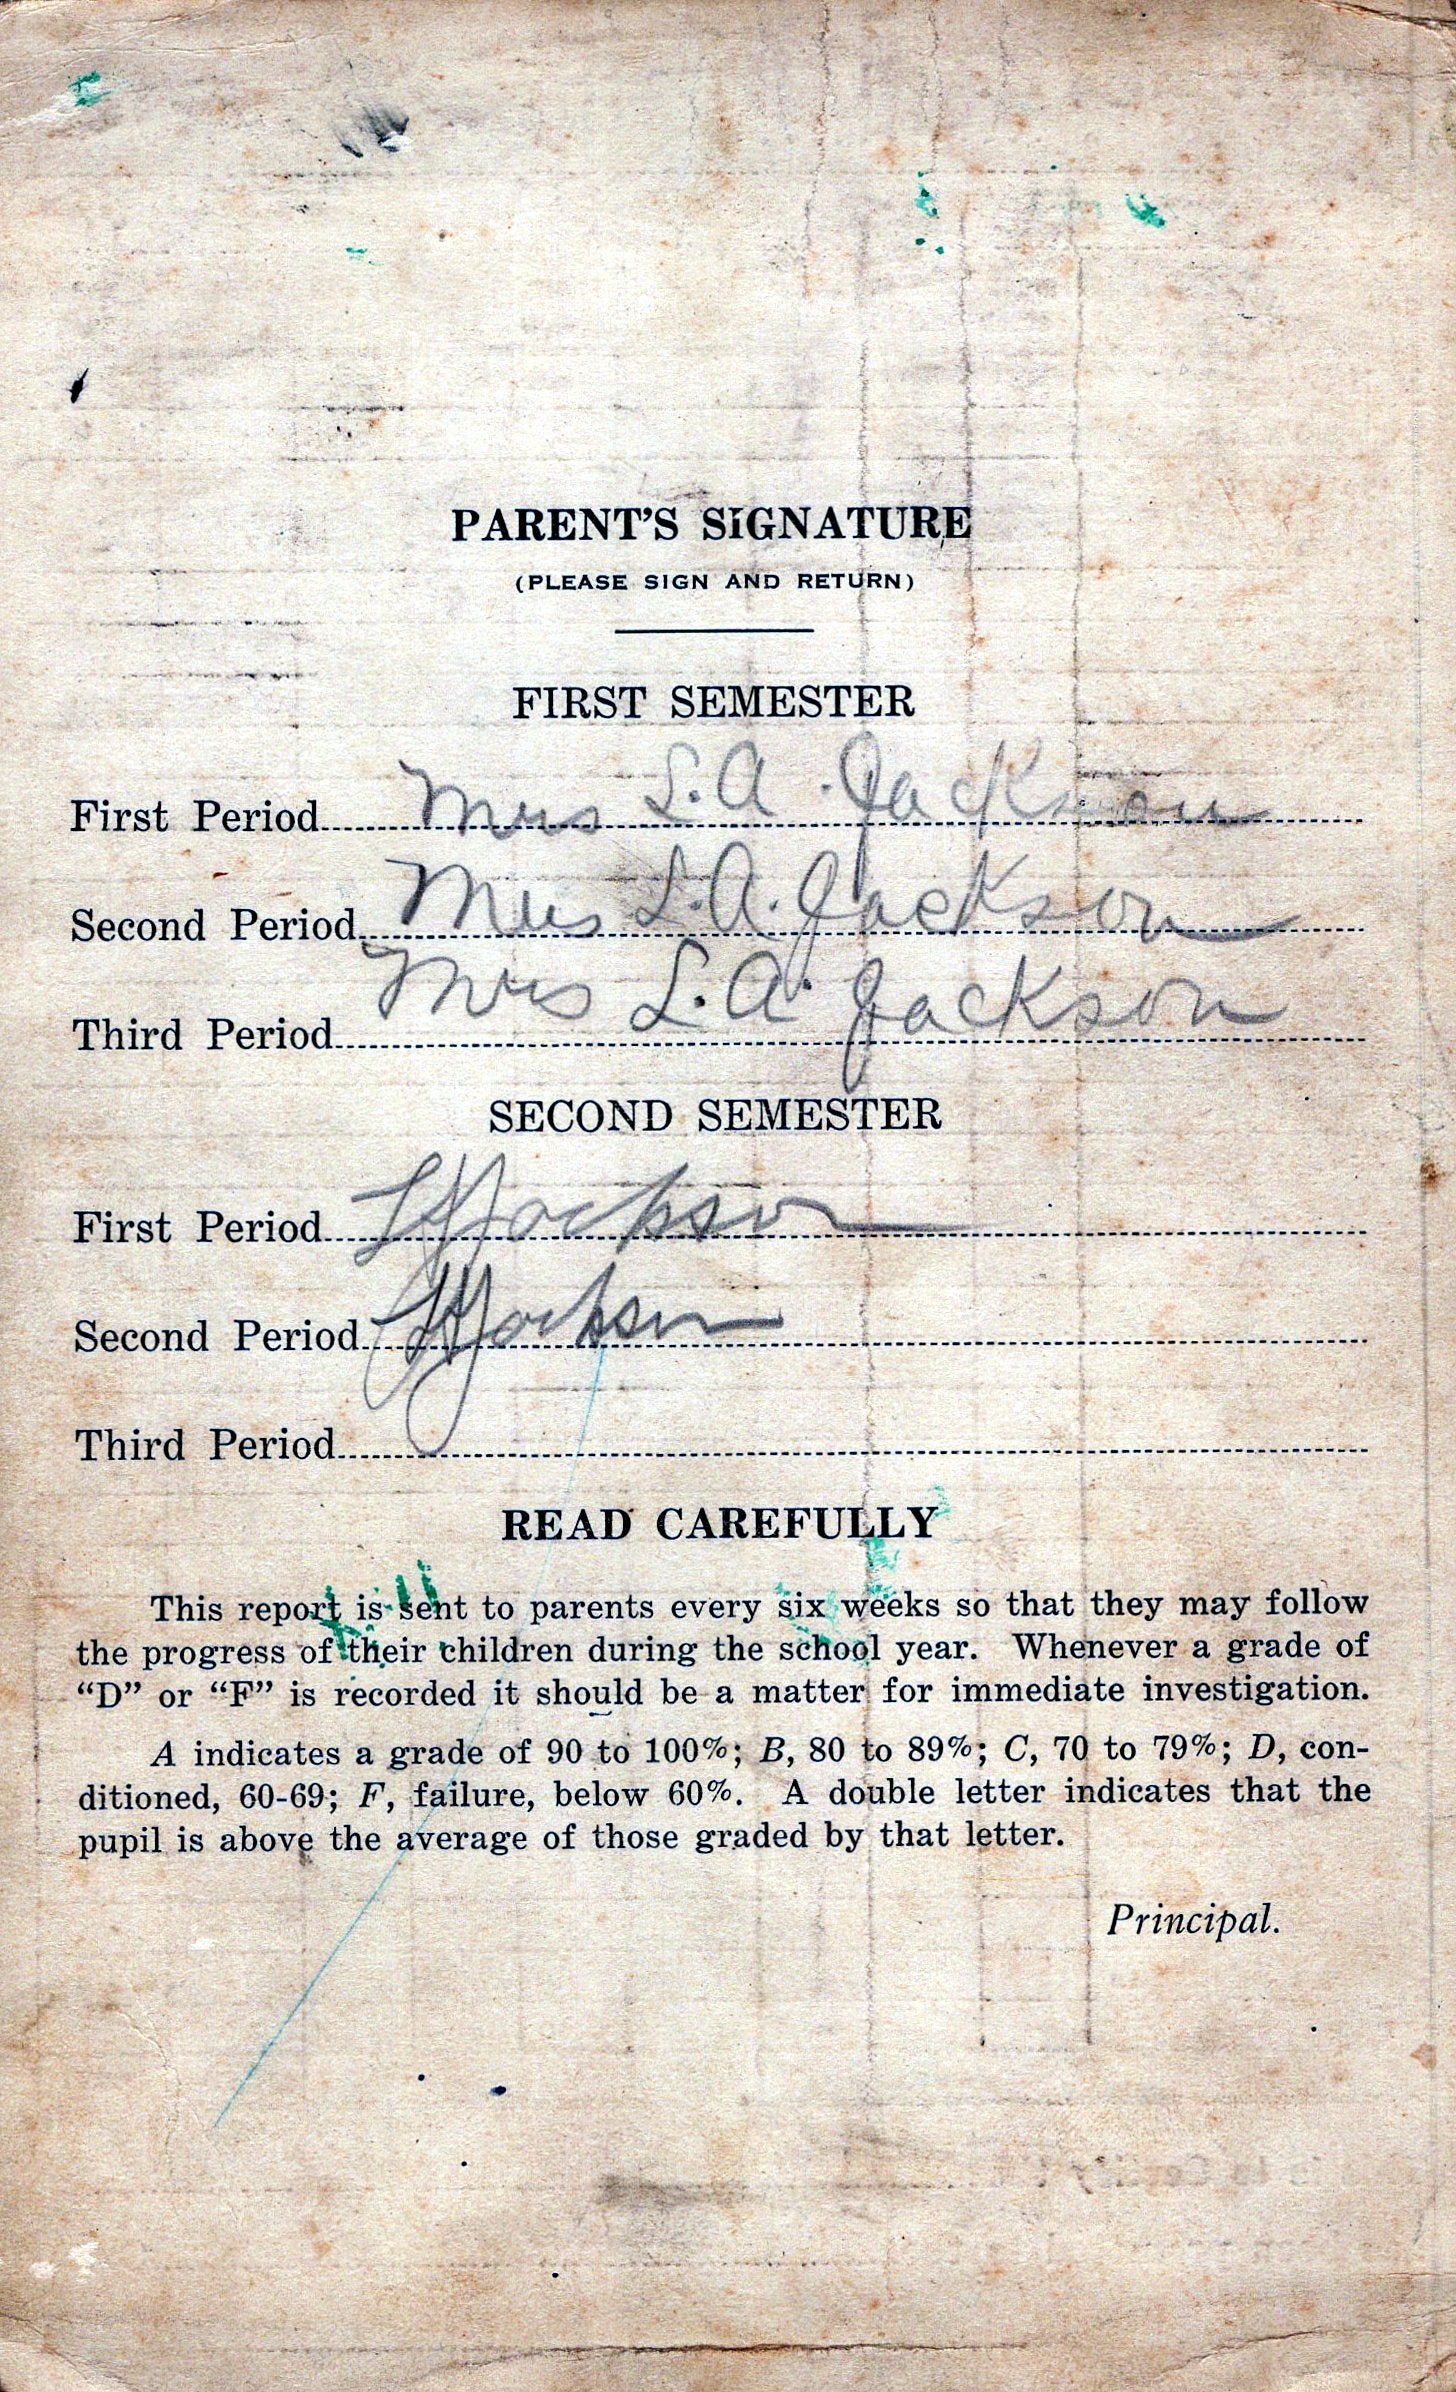 PARENT'S SIGNATURE
(PLEASE SIGN AND RETURN)
FIRST SEMESTER
First Period Mrs L. A. Jackson
Second Period Mrs L. A. Jackson
Third Period Mrs L. A. Jackson
SECOND SEMESTER
First Period L A Jackson
Second Period L A Jackson
Third Period
READ CAREFULLY
This report is sent to parents every six weeks so that they may follow
the progress of their children during the school year. Whenever a grade of
“D” or “F” is recorded it should be a matter for immediate investigation.
A indicates a grade of 90 to 100%; B, 80 to 89%; C, 70 to 79%; D, con-
ditioned, 60-69; F, failure, below 60%. A double letter indicates that the
pupil is above the average of those graded by that letter.
Principal.